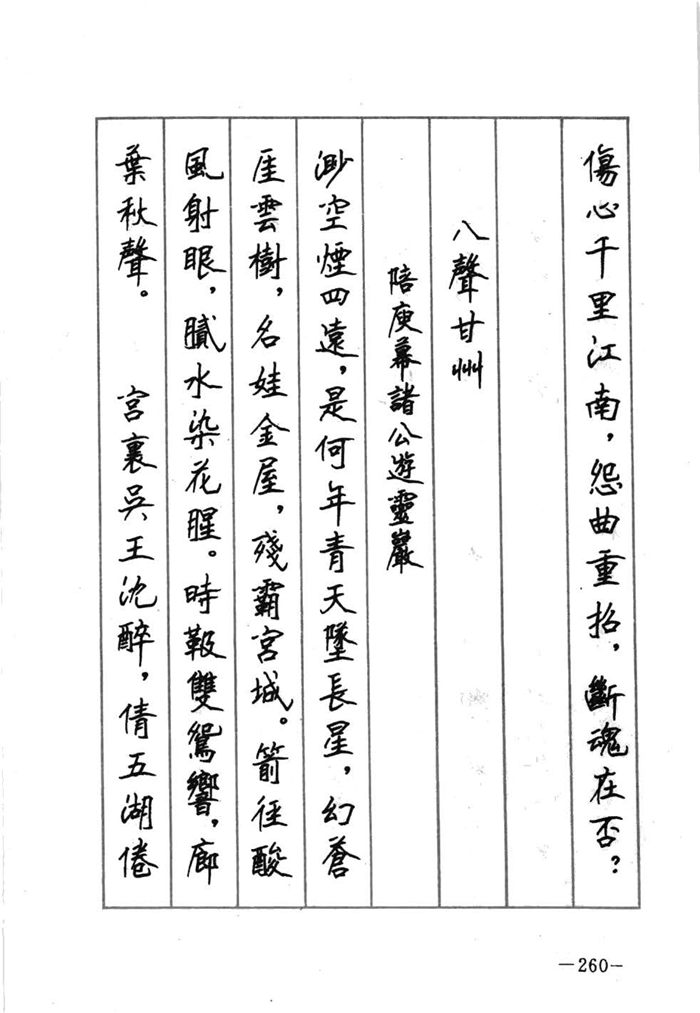 傷心千里江南，怨曲重招，斷魂在否？
八聲甘州
陪庾幕諸公遊靈巖
渺空煙四遠，是何年青天墜長星，幻蒼
厓雲樹，名娃金屋，殘霸宮城。箭徑酸
風射眼，膩水染花腥。時靸雙鴛響，廊
葉秋聲。　宮裏吳王沈醉，倩五湖倦
—260—